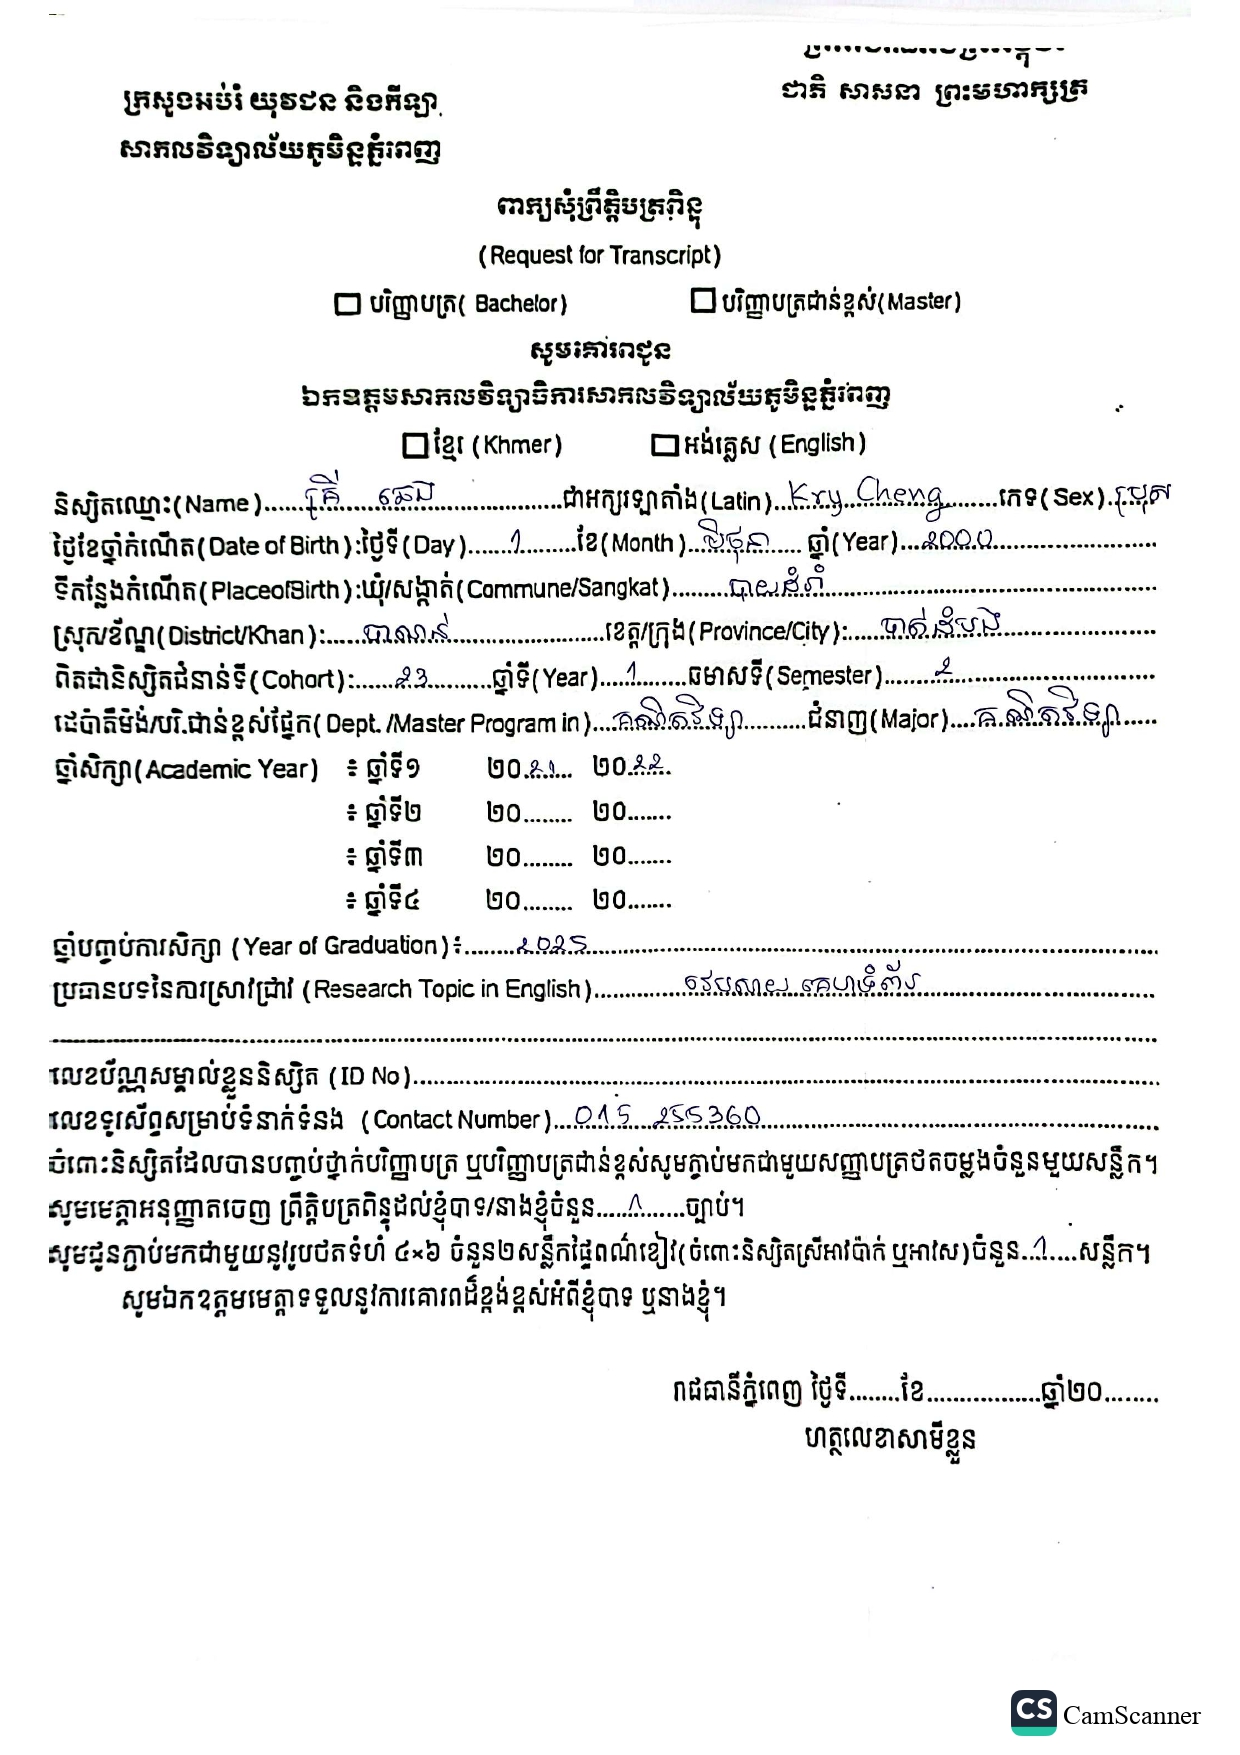 ជាតិ សាសនា ព្រះមហាក្សត្រ
ក្រសួងអប់រំ យុវជន និងកីឡា
សាកលវិទ្យាល័យភូមិន្ទភ្នំពេញ
ពាក្យសុំព្រឹត្តិបត្រពិន្ទុ
(Request for Transcript)
បរិញ្ញាបត្រ( Bachelor) បរិញ្ញាបត្រជាន់ខ្ពស់(Master)
សូមគោរពជូន
ឯកឧត្តមសាកលវិទ្យាធិការសាកលវិទ្យាល័យភូមិន្ទភ្នំពេញ
ខ្មែរ (Khmer) អង់គ្លេស (English)
និស្សិតឈ្មោះ(Name)......គ្រី ឆេង......ជាអក្សរឡាតាំង(Latin)..Kry Cheng......ភេទ(Sex).ប្រុស
ថ្ងៃខែឆ្នាំកំណើត(Date of Birth):ថ្ងៃទី(Day)......1......ខែ(Month)..មិថុនា.... ឆ្នាំ(Year)...2000......
ទីកន្លែងកំណើត(PlaceofBirth):ឃុំ/សង្កាត់(Commune/Sangkat)........បាយដំរាំ......
ស្រុក/ខ័ណ្ឌ(District/Khan):.....បាណន់......ខេត្ត/ក្រុង(Province/City):.....បាត់ដំបង......
ពិតជានិស្សិតជំនាន់ទី(Cohort):......23.........ឆ្នាំទី(Year)....1.......ឆមាសទី(Semester).......2......
ដេប៉ាតឺម៉ង់/បរិ.ជាន់ខ្ពស់ផ្នែក( Dept. /Master Program in)...គណិតវិទ្យា.........ជំនាញ(Major)....គណិតវិទ្យា.....
ឆ្នាំសិក្សា(Academic Year) ៖ ឆ្នាំទី១ ២០.21... ២០.22.
៖ ឆ្នាំទី២ ២០........ ២០.......
៖ ឆ្នាំទី៣ ២០........ ២០.......
៖ ឆ្នាំទី៤ ២០........ ២០.......
ឆ្នាំបញ្ចប់ការសិក្សា (Year of Graduation)៖........2025......
ប្រធានបទនៃការស្រាវជ្រាវ (Research Topic in English)............វេបសាយ គេហទំព័រ......
លេខប័ណ្ណសម្គាល់ខ្លួននិស្សិត (ID No)......
លេខទូរស័ព្ទសម្រាប់ទំនាក់ទំនង (Contact Number)...015 255360......
ចំពោះនិស្សិតដែលបានបញ្ចប់ថ្នាក់បរិញ្ញាបត្រ ឬបរិញ្ញាបត្រជាន់ខ្ពស់សូមភ្ជាប់មកជាមួយសញ្ញាបត្រថតចម្លងចំនួនមួយសន្លឹក។
សូមមេត្តាអនុញ្ញាតចេញ ព្រឹត្តិបត្រពិន្ទុដល់ខ្ញុំបាទ/នាងខ្ញុំចំនួន.....1.......ច្បាប់។
សូមជូនភ្ជាប់មកជាមួយនូវរូបថតទំហំ ៤×៦ ចំនួន២សន្លឹកផ្ទៃពណ៌ខៀវ(ចំពោះនិស្សិតស្រីអាវប៉ាក់ ឬអាវស)ចំនួន..1....សន្លឹក។
សូមឯកឧត្តមមេត្តាទទួលនូវការគោរពដ៏ខ្ពង់ខ្ពស់អំពីខ្ញុំបាទ ឬនាងខ្ញុំ។
រាជធានីភ្នំពេញ ថ្ងៃទី........ខែ.................ឆ្នាំ២០........
ហត្ថលេខាសាមីខ្លួន
CS CamScanner